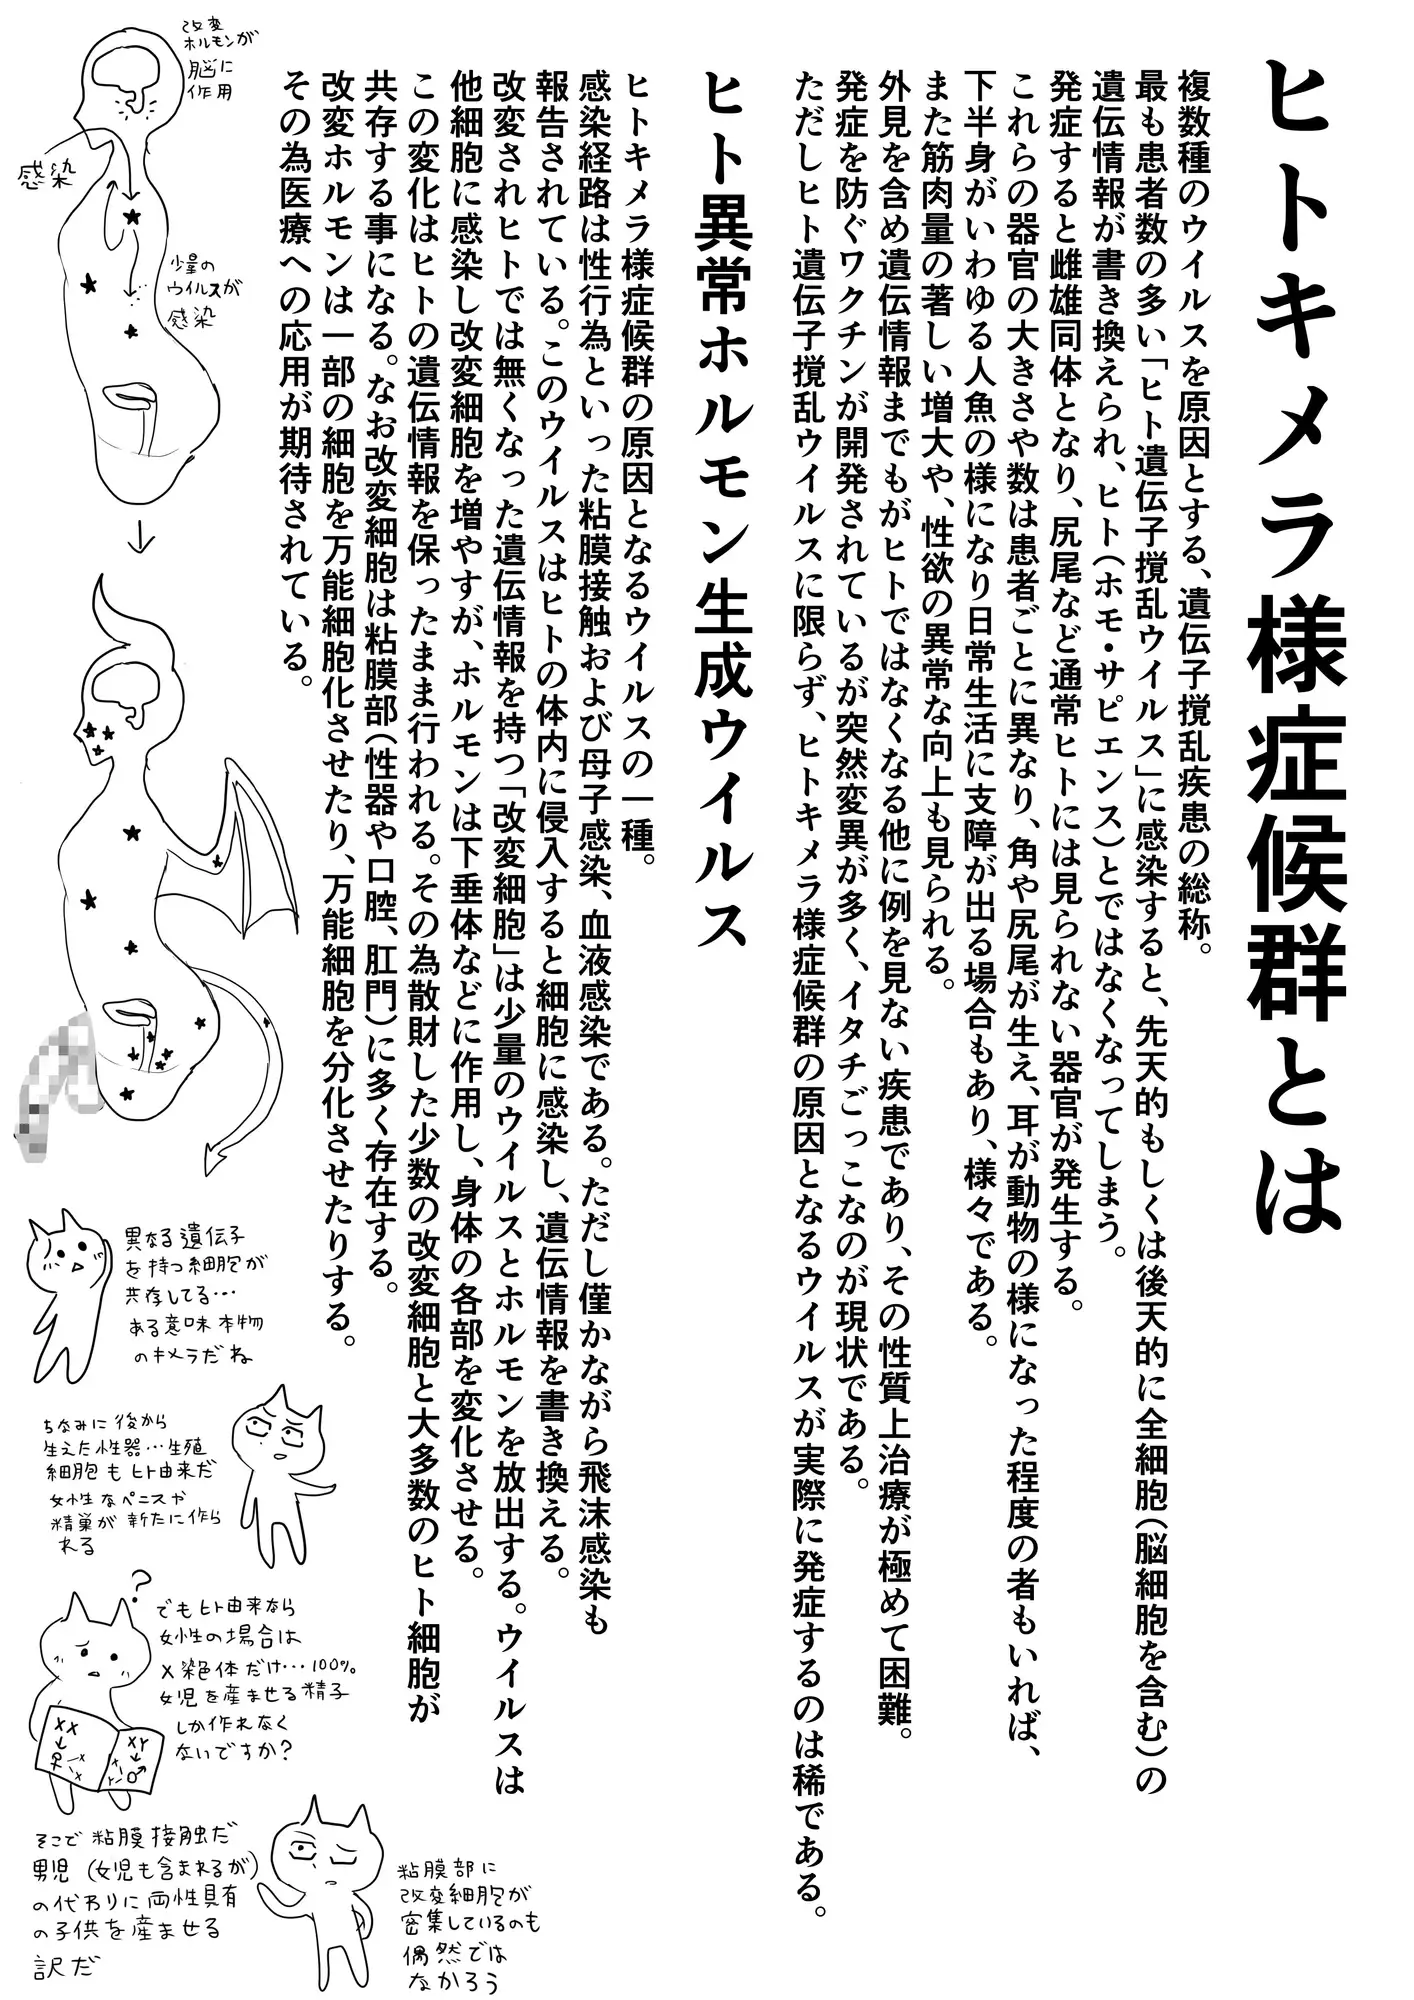 ヒトキメラ様症候群とは
複数種のウイルスを原因とする、遺伝子撹乱疾患の総称。
最も患者数の多い「ヒト遺伝子撹乱ウイルス」に感染すると、先天的もしくは後天的に全細胞(脳細胞を含む)の
遺伝情報が書き換えられ、ヒト(ホモ・サピエンス)とではなくなってしまう。
発症すると雌雄同体となり、尻尾など通常ヒトには見られない器官が発生する。
これらの器官の大きさや数は患者ごとに異なり、角や尻尾が生え、耳が動物の様になった程度の者もいれば、
下半身がいわゆる人魚の様になり日常生活に支障が出る場合もあり、様々である。
また筋肉量の著しい増大や、性欲の異常な向上も見られる。
外見を含め遺伝情報までもがヒトではなくなる他に例を見ない疾患であり、その性質上治療が極めて困難。
発症を防ぐワクチンが開発されているが突然変異が多く、イタチごっこなのが現状である。
ただしヒト遺伝子撹乱ウイルスに限らず、ヒトキメラ様症候群の原因となるウイルスが実際に発症するのは稀である。
ヒト異常ホルモン生成ウイルス
ヒトキメラ様症候群の原因となるウイルスの一種。
感染経路は性行為といった粘膜接触および母子感染、血液感染である。ただし僅かながら飛沫感染も
報告されている。このウイルスはヒトの体内に侵入すると細胞に感染し、遺伝情報を書き換える。
改変されヒトでは無くなった遺伝情報を持つ「改変細胞」は少量のウイルスとホルモンを放出する。ウイルスは
他細胞に感染し改変細胞を増やすが、ホルモンは下垂体などに作用し、身体の各部を変化させる。
この変化はヒトの遺伝情報を保ったまま行われる。その為散財した少数の改変細胞と大多数のヒト細胞が
共存する事になる。なお改変細胞は粘膜部(性器や口腔、肛門)に多く存在する。
改変ホルモンは一部の細胞を万能細胞化させたり、万能細胞を分化させたりする。
その為医療への応用が期待されている。
改変
ホルモンが
脳に
作用
感染
少量の
ウイルスが
感染
異なる遺伝子
を持つ細胞が
共存してる…
ある意味本物
のキメラだね
ちなみに後から
生えた性器…生殖
細胞もヒト由来だ
女性なペニスか
精巣が新たに作ら
れる
?
でもヒト由来なら
女性の場合は
X染色体だけ…100%
女児を産ませる精子
しか作れなく
ないですか?
XX
↓
♀
X
X
XY
↓
♂
X
Y
そこで粘膜接触だ
男児(女児も含まれるが)
の代わりに両性具有
の子供を産ませる
訳だ
粘膜部に
改変細胞が
密集しているのも
偶然では
なかろう